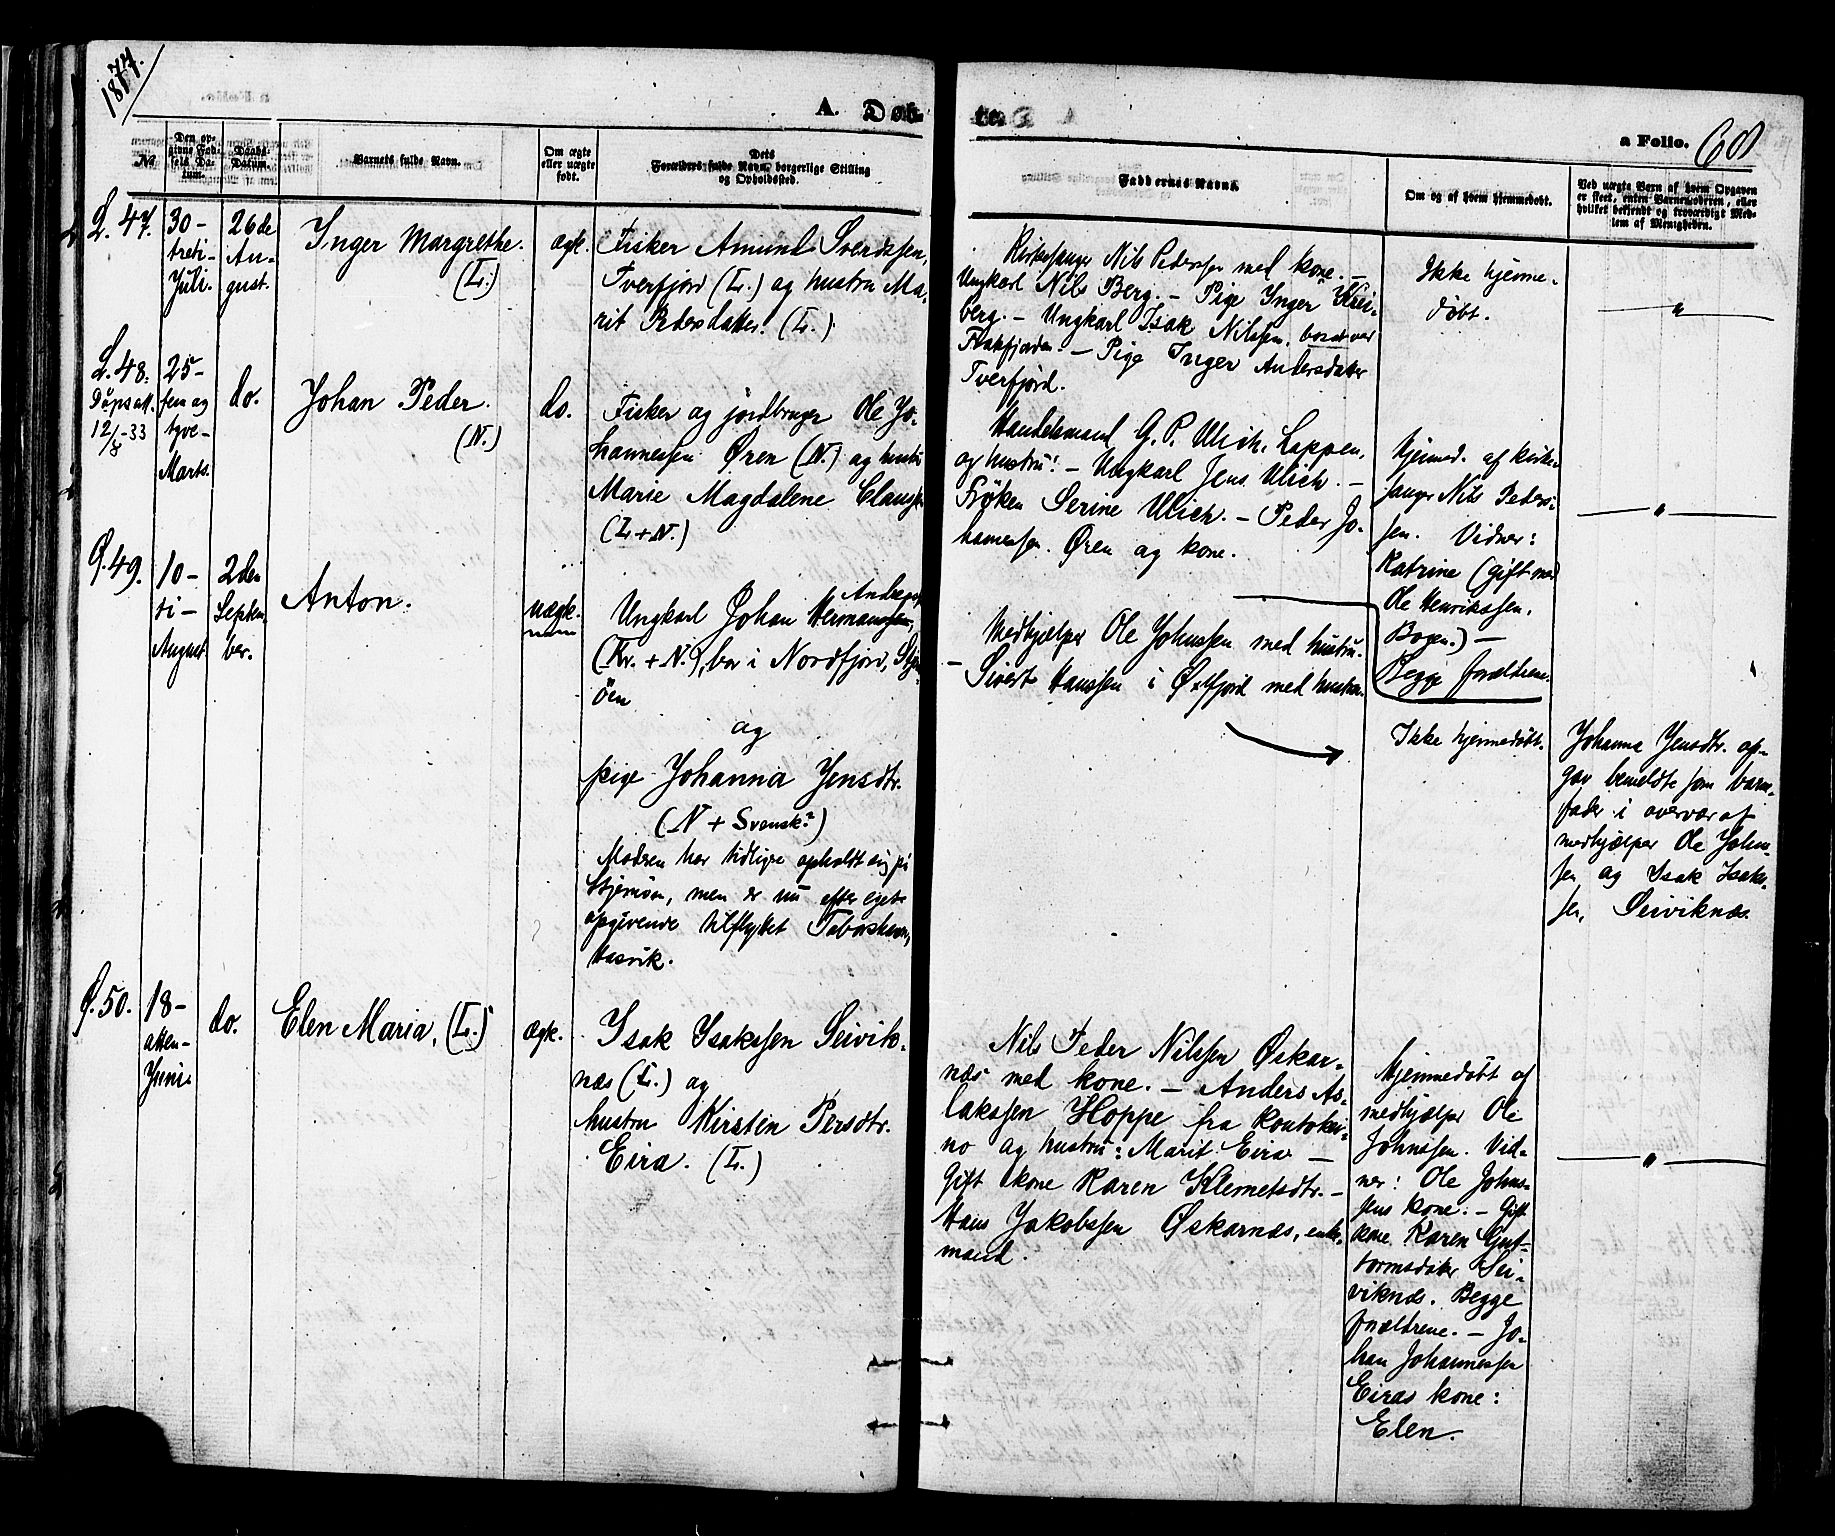 1877.
A. Døb-
te.
a Folio. 68
No
Den opgivne Fødsels Datum.
Daabs-Datum.
Barnets fulde Navn.
Om ægte
eller uægte
født.
Dets
Forældres fulde Navn, borgerlige Stilling
og Opholdssted.
Faddernes Navne.
Om og af hvem hjemmedøbt.
Ved uægte Barn af hvem Opgaven
er skeet, enten Barnemoderen, eller
hvilket bekjendt og troværdigt Med-
lem af Menigheden.
L. 47.
30-
treti-
Juli.
26de
Au-
gust.
Inger Margrethe.
(L.)
ægt.
Fisker Amund Svendssen,
Tverfjord (L.) og hustru Ma-
rit Pedersdatter. (L.)
Kirkesanger Nils Pederssen med kone. -
Ungkarl Nils Berg. - Pige Inger
berg. - Ungkarl Isak Nilssen,
- Pige Inger Andersdatter
Tverfjord.
Ikke hjemme-
døbt.
"
L. 48.
Döpsatt.
12/8-33
25-
fem og
tyve-
Marts.
do.
Johan Peder.
(N.)
do.
Fisker og jordbruger Ole Jo-
hannessen Øren (N.) og hustru
Marie Magdalene Clauss
(L+N.)
Handelsmand G. P. Ulich, Loppen,
og hustru! - Ungkarl Jens Ulich. -
Frøken Serine Ulich. - Peder Jo-
hannessen. Øren og kone.
Hjemmed. af kirke-
sanger Nils Peders-
sen. Vidner:
Katrine (gift med
Ole Henrikssen,
Bogen.) -
Begge forældrene.
"
Ø. 49.
10-
ti-
August
2den
Septem-
ber.
Anton.
uægt.
Ungkarl Johan Hermanssen,
(Kv. + N.), bor i Nordfjord, Stjern-
öen
og
pige Johanna Jensdtr.
(N + Svensk?)
Modren har tidligre opholdt sig på
Stjernøen, men er nu efter eget
opgivende tilflyttet
Hasvik.
Medhjælper Ole Johnssen med hustru.
- Sivert Hanssen i Øxfjord med hustru.
Ikke hjemmedøbt.
Johanna Jensdtr. op-
gav bemeldte som barne-
fader i overvær af
medhjælper Ole Johns-
sen og Isak Isaks-
sen, Seiviknæs.
Ø. 50.
18-
atten-
Juni.
do.
Elen Maria, (L.)
ægt.
Isak Isakssen Seivik-
næs (L.) og
hustru Kirsten Persdtr.
Eira. (L.)
Nils Peder Nilssen Øskar-
næs med kone. - Anders As-
lakssen Hoppe fra Koutokei-
no og hustru: Marit Eira -
Gift kone Karen Klemetsdtr. -
Hans Jakobssen Øskarnæs, enke-
mand.
Hjemmedøbt af
medhjælper Ole
Johnssen. Vid-
ner: Ole Johns-
sens kone. - Gift
kone Karen Gut-
tormsdatter Sei-
viknæs. Begge
forældrene. - Jo-
han Johannessen
Eiras kone:
Elen.
"